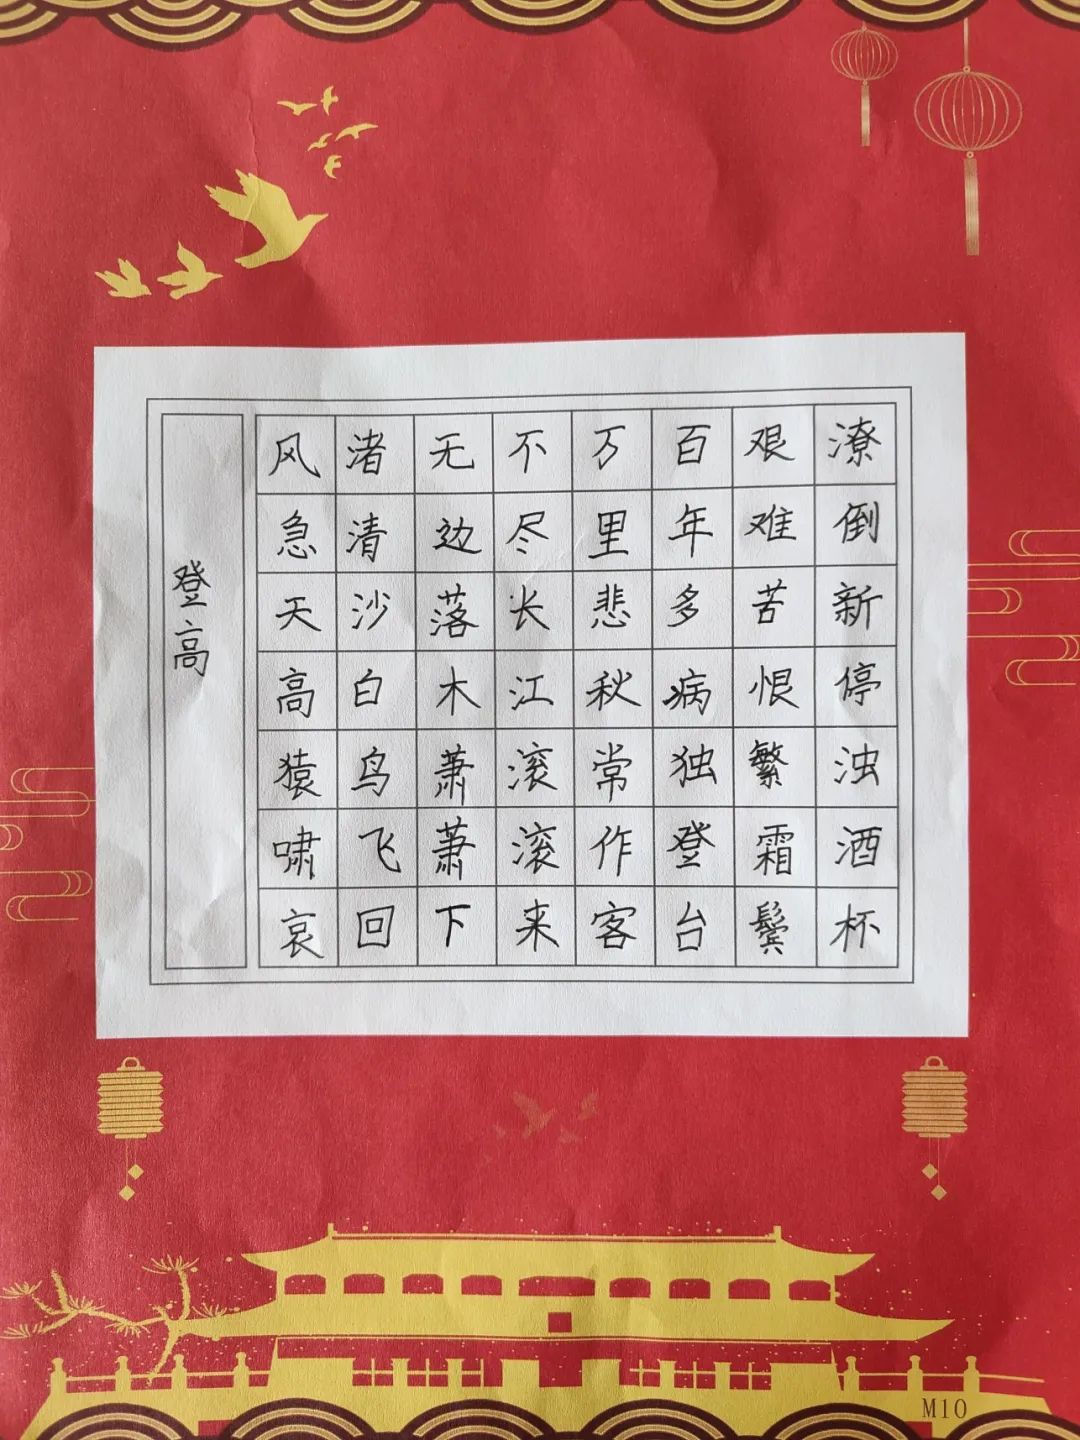 登高
风急天高猿啸哀
渚清沙白鸟飞回
无边落木萧萧下
不尽长江滚滚来
万里悲秋常作客
百年多病独登台
艰难苦恨繁霜鬓
潦倒新停浊酒杯
M10